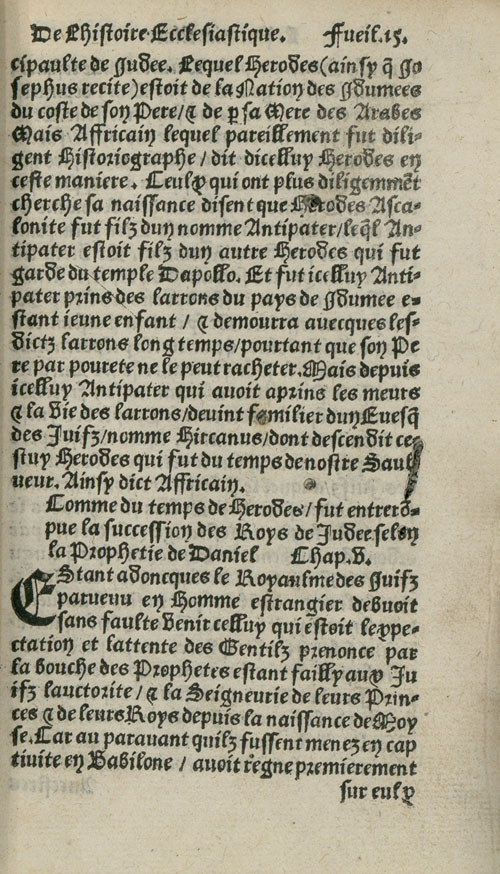 De Lhistoire Ecclesiastique. Fueil.15.
cipaulte de Judee. Lequel Herodes (ainsy q̃ Jo
sephus recite) estoit de la Nation des Jdumees
du coste de son Pere/⁊ de ꝑ sa Mere des Arabes
Mais Affricain lequel pareillement fut dili-
gent Historiographe / dit dicelluy Herodes en
ceste maniere. Ceulx qui ont plus diligemmẽt
cherche sa naissance disent que Herodes Asca-
lonite fut filz dun nomme Antipater/leq̃l An-
tipater estoit filz dun autre Herodes qui fut
garde du temple Dapollo. Et fut icelluy Anti-
pater prins des larrons du pays de Jdumee e-
stant ieune enfant / ⁊ demourra auecques les-
dictz larrons long temps/pourtant que son Pe
re par pourete ne le peut racheter. Mais depuis
icelluy Antipater qui auoit aprins les meurs
⁊ la vie des larrons/deuint familier dun Euesq̃
des Juifz/nomme Hircanus/dont descendit ce-
stuy Herodes qui fut du temps de nostre Saul
ueur. Ainsy dict Affricain.
Comme du temps de Herodes/fut entrerõ-
pue la succession des Roys de Judee selon
la Prophetie de Daniel Chap.v.
EStant adoncques le Royaulme des Juifz
paruenu en Homme estrangier debuoit
sans faulte venir celluy qui estoit lexpe-
ctation et lattente des Gentilz prenonce par
la bouche des Prophetes estant failly aux Ju
ifz lauctorite/⁊ la Seigneurie de leurs Prin-
ces ⁊ de leurs Roys depuis la naissance de Moy
se. Car au parauant quilz fussent menez en cap
tiuite en Babilone / auoit regne premierement
sur eulx